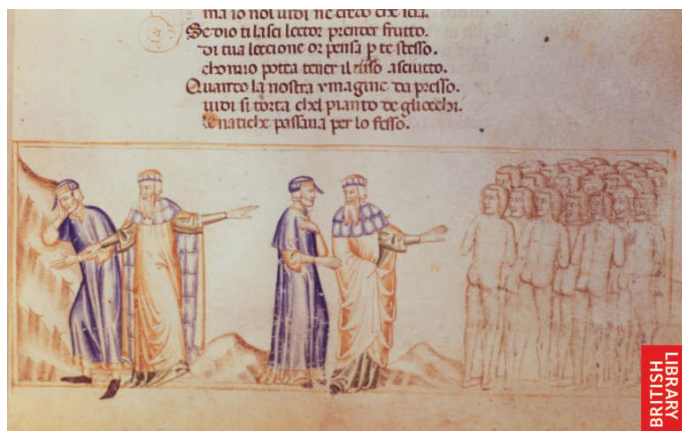 ma io nol uidi ne creco che
Se dio ti lasci lector prender frutto.
di tua lectione or pensa p te stesso.
chomio potea tener il uiso asciutto.
Quanto la nostra ymagine da presso.
uidi si torta chel pianto de gliocchi.
le natiche passaua per lo fesso.
BRITISH
LIBRARY